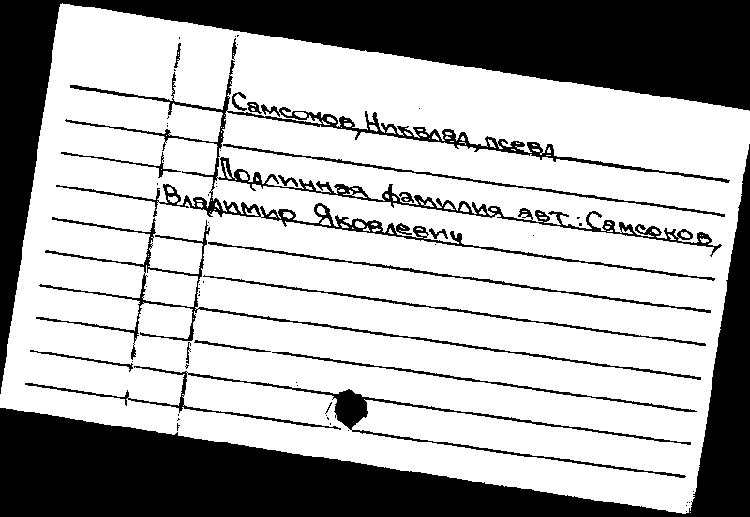 Самсонов, Николай, псевд
Подлинная фамилия авт.: Самсонов,
Владимир Яковлевич